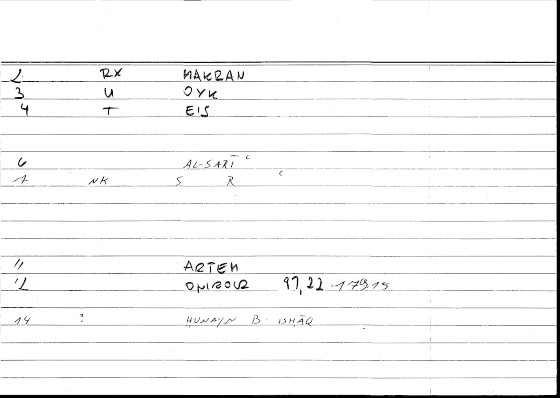 2 RX MAKRAN
3 U OYK
4 T EIS
6 AL-SARĪʿ
7 NK S R ʿ
11 ARTEM
12 97,22 179,15
14 : HUNAYN B. ISHĀQ